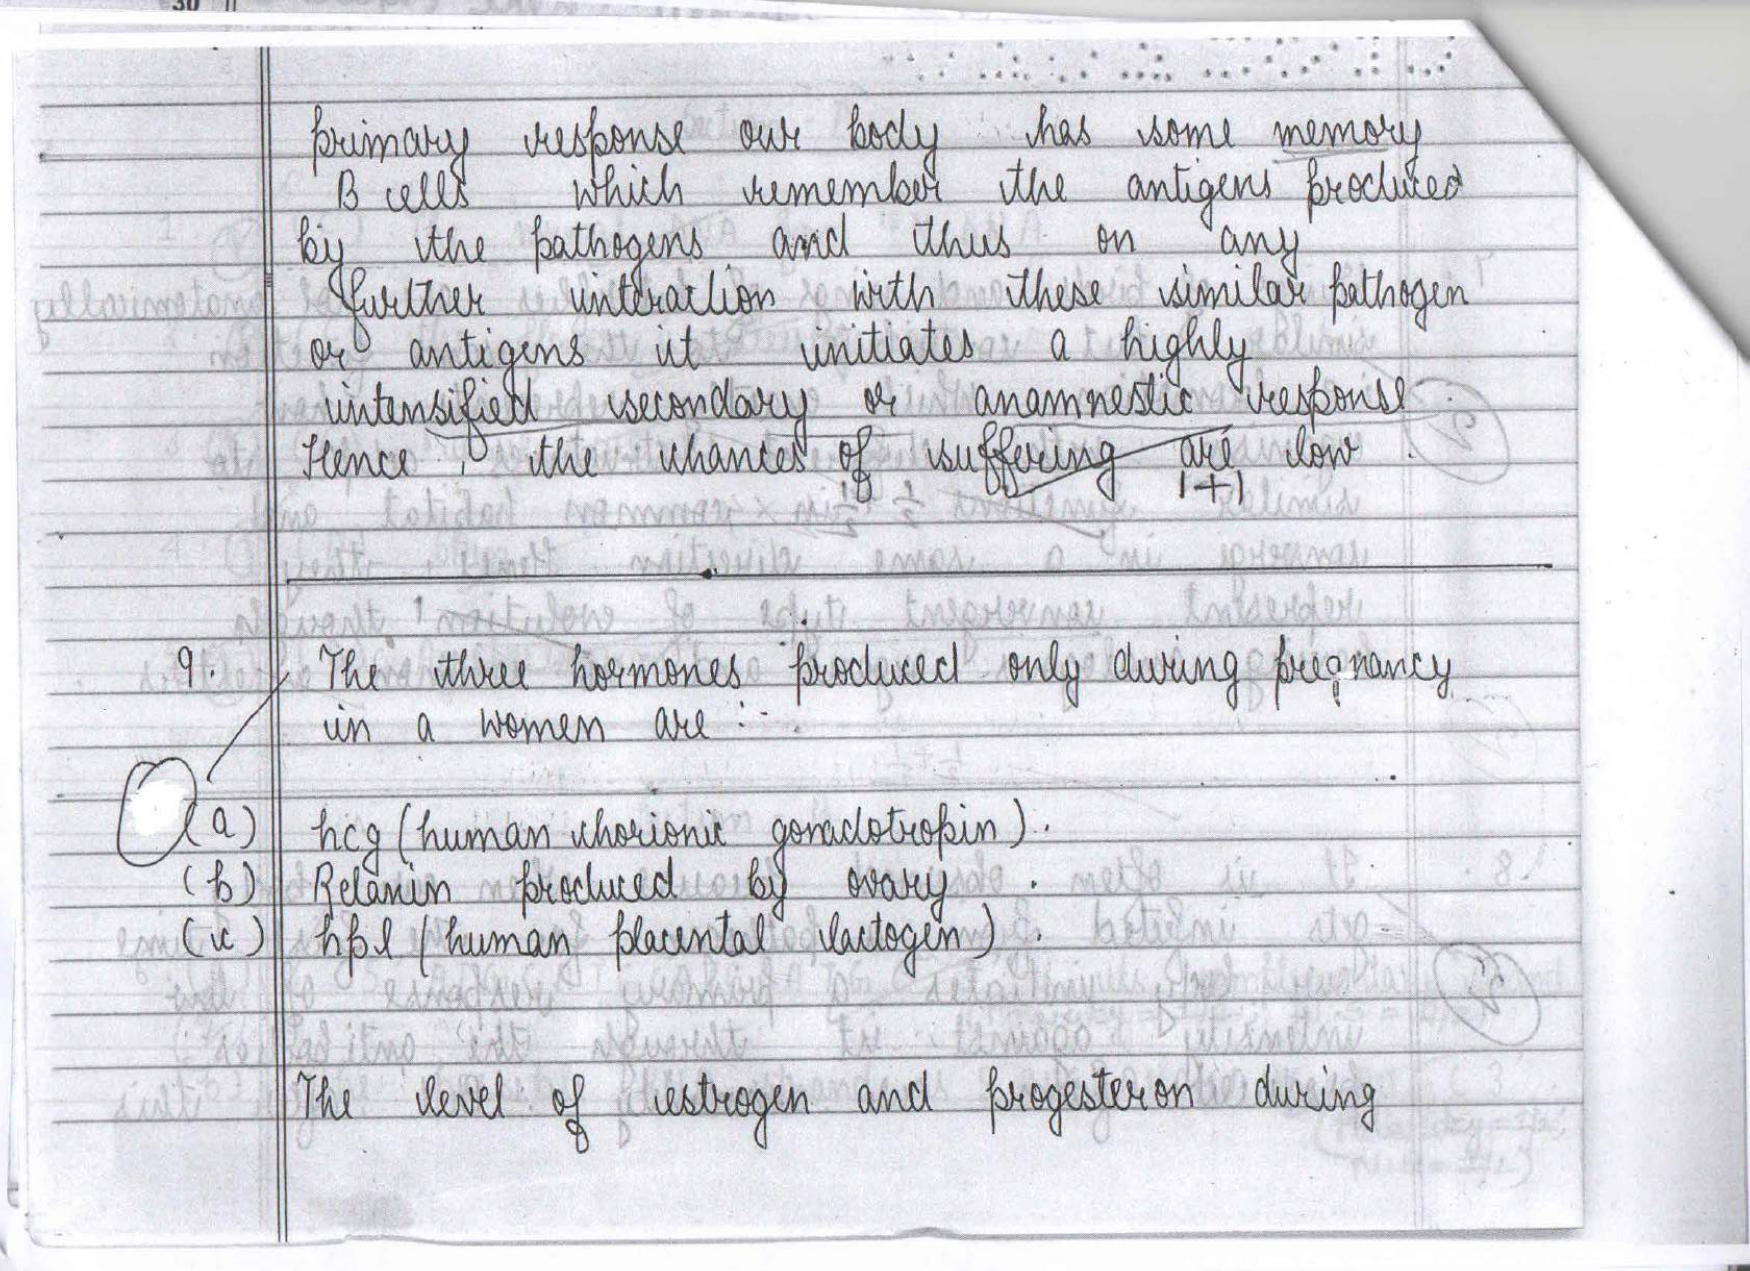 30
primary response our body has some memory
B cells which remember the antigens produced
by the pathogens and thus on any
further interaction with these similar pathogen
or antigens it initiates a highly
intensified secondary or anamnestic response.
Hence, the chances of suffering are low.
1+1
9. The three hormones produced only during pregnancy
in a women are :-
(a) hcg (human chorionic gonadotropin).
(b) Relaxin produced by ovary.
(c) hpl (human placental lactogen).
The level of estrogen and progesteron during